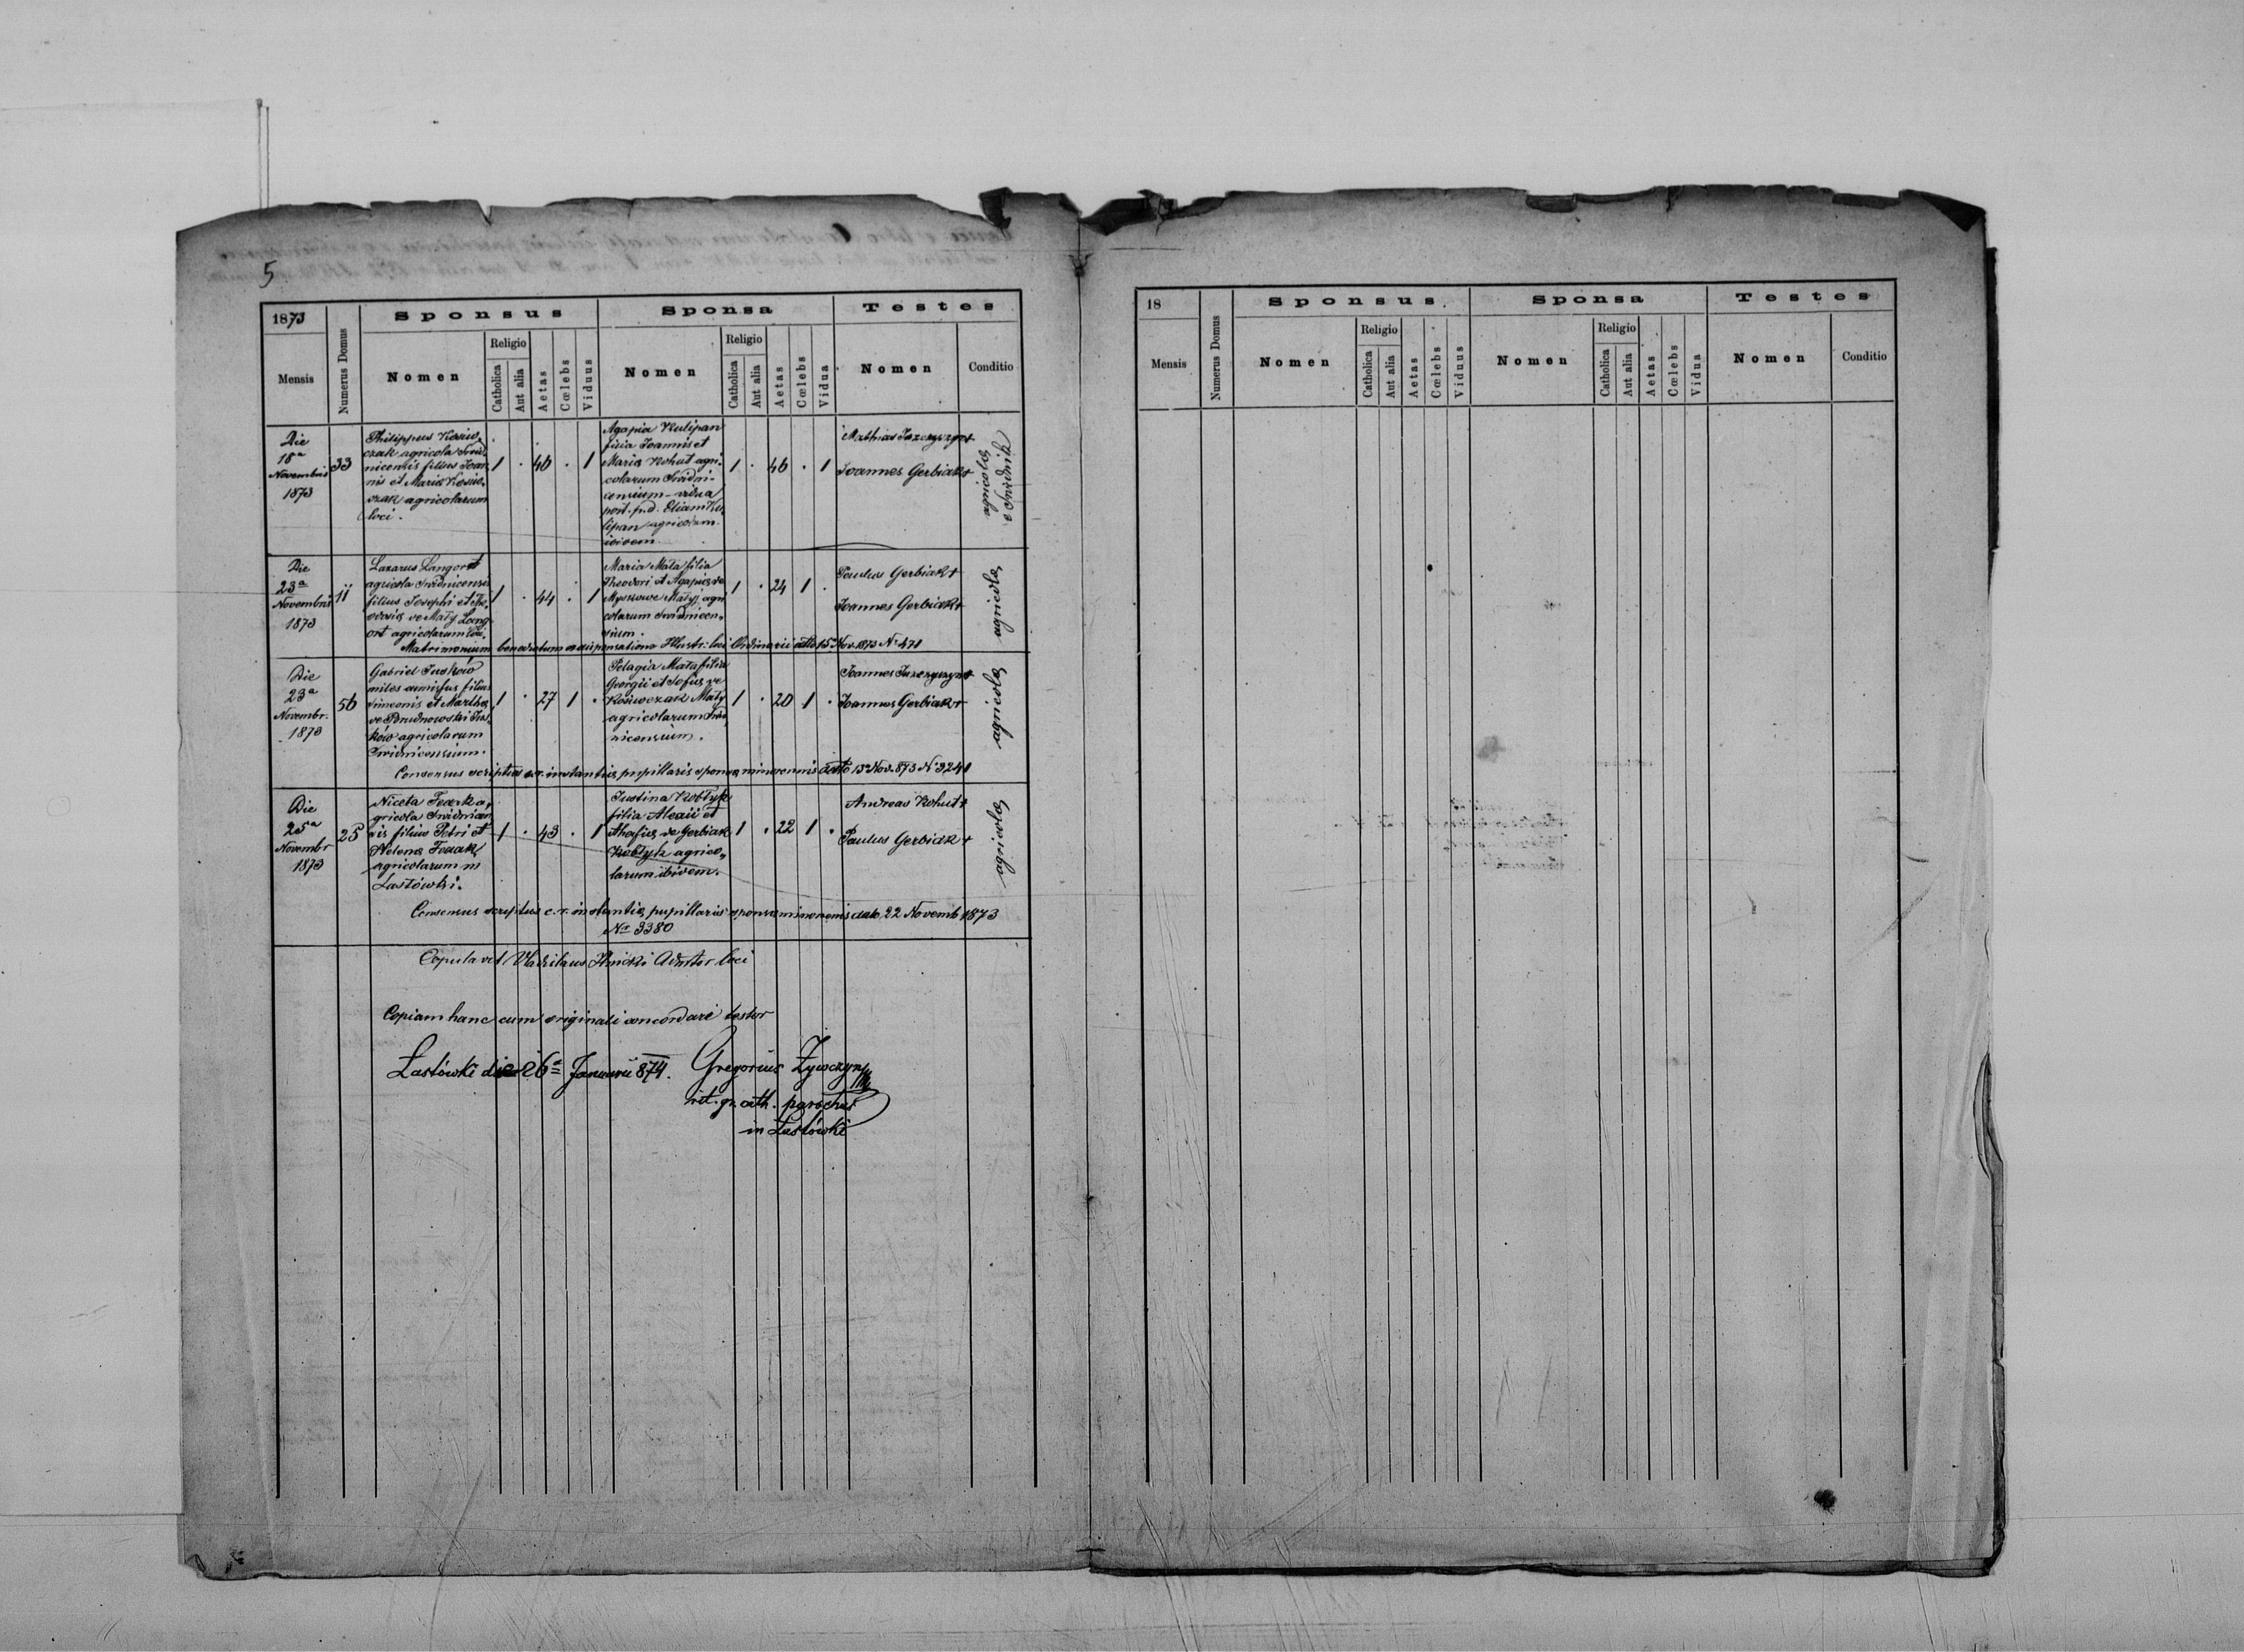 5
1873
Mensis
Numerus Domus
Sponsus
Nomen
Religio
Catholica
Aut alia
Aetas
Cœlebs
Viduus
Sponsa
Nomen
Religio
Catholica
Aut alia
Aetas
Cœlebs
Vidua
Testes
Nomen
Conditio
Die
18ª
Novembris
1873
33
Philippus Kosiw„
czak agricola Svid„
nicensis filius Joan
nis et Maria Kosiw„
czak agricolarum
loci.
1 . 46 . 1
Agapia Kulipan
filia Joannis et
Maria Kohut agri„
colarum Svidni-
censium - vidua
post. p.d. Eliam Ku
lipan agricolam
ibidem.
1 . 46 . 1
Mathias Jazczyszyn+
Joannes Gerbiak+
agricola
e Svidnik
Die
23ª
Novembris
1873
11
Lazarus Langort
agricola Svidnicensis
filius Josephi et The„
odosia de Mały Lang„
ort agricolarum loci.
1 . 44 . 1
Maria Mała filia
Theodori et Agapia de
Myszowe Małyj agri
colarum Svidnicen„
sium.
1 . 24 1 .
Paulus Gerbiak+
Joannes Gerbiak+
agricola
Matrimonium benedictum e dispensatione Illustr. loci Ordinarii ddto 15 Nov. 1873 Nº 471
Die
23ª
Novembr.
1873
56
Gabriel Juskow
miles filius
Simeonis et Martha
de Brudnowski Jus„
ków agricolarum
Svidnicensium.
1 . 27 1 .
Pelagia Mała filia
Georgii et Sofia de
Kosiwczak Mały
agricolarum Svid„
nicensium.
1 . 20 1 .
Joannes Jazczyszyn+
Joannes Gerbiak+
agricola
Consensus scriptus c.r. instantia pupillaris sponsa minorennis ddto 13 Nov. 873 Nº 3241
Die
25ª
Novembr
1873
25
Niceta Feczak a„
gricola Svidnicen
sis filius Petri et
Helena Feczak
agricolarum in
Lastówki.
1 . 43 . 1
Justina Kobłyk
filia Alexii et
Thafia de Gerbiak
Kobłyk agrico„
larum ibidem.
1 . 22 1 .
Andreas Kohut+
Paulus Gerbiak+
agricola
Consensus scriptus c.r. instantia pupillaris sponsa minorennis ddto 22 Novemb 1873
Nº 3380
Copulavit Vladislaus Ilnicki Admtor loci
Copiam hanc cum originali concordare testor
Łastówki die 26ª Januarii 874. Gregorius Żywczyn
rit. gr. cath. parochus
in Łastówki
18
Mensis
Numerus Domus
Sponsus
Nomen
Religio
Catholica
Aut alia
Aetas
Cœlebs
Viduus
Sponsa
Nomen
Religio
Catholica
Aut alia
Aetas
Cœlebs
Vidua
Testes
Nomen
Conditio